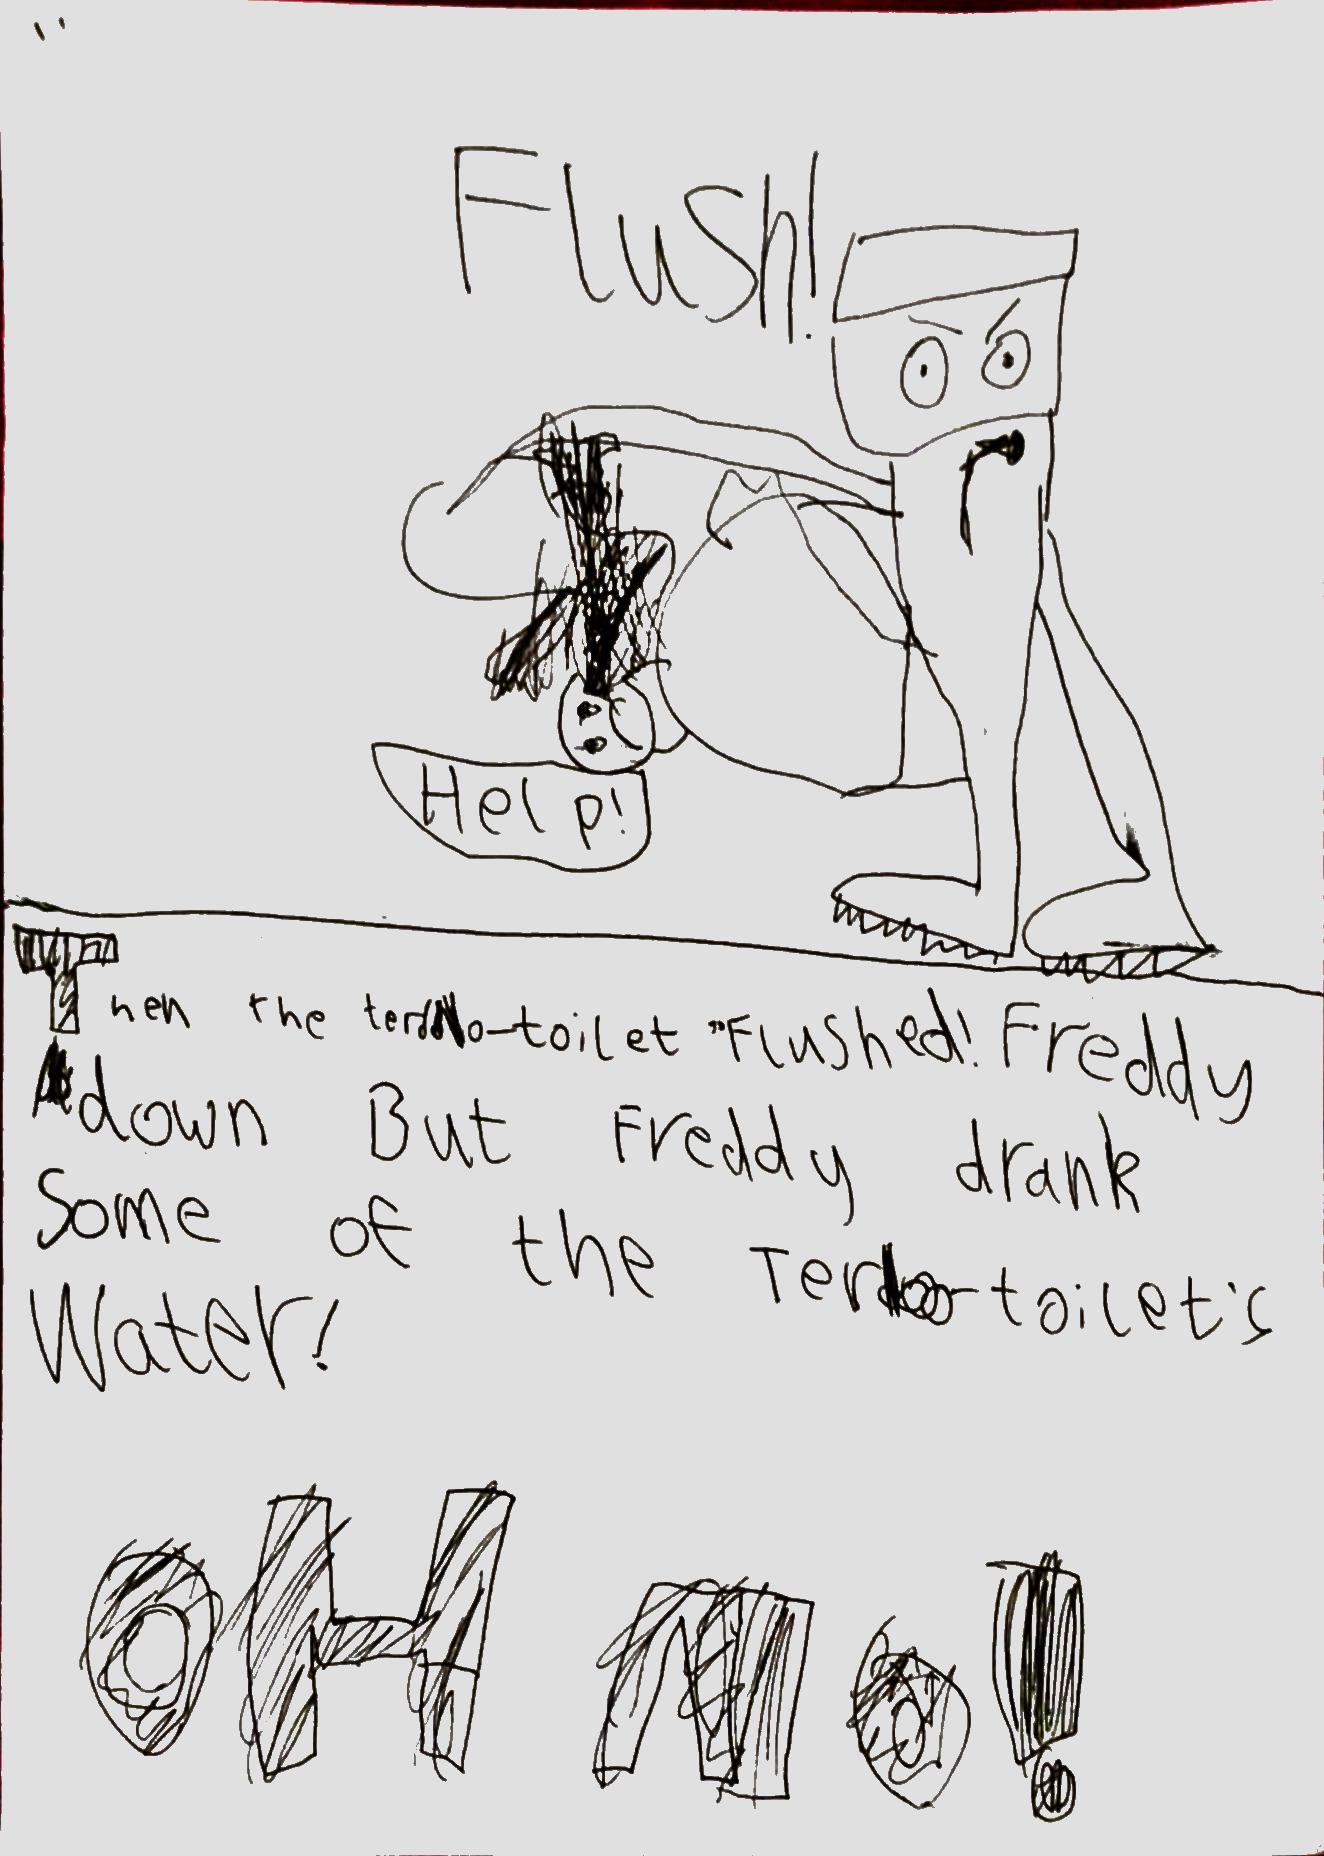 Flush!
Help!
Then the toilet "Flushed! Freddy
down But Freddy drank
Some of the toilet's
Water!
OH no!